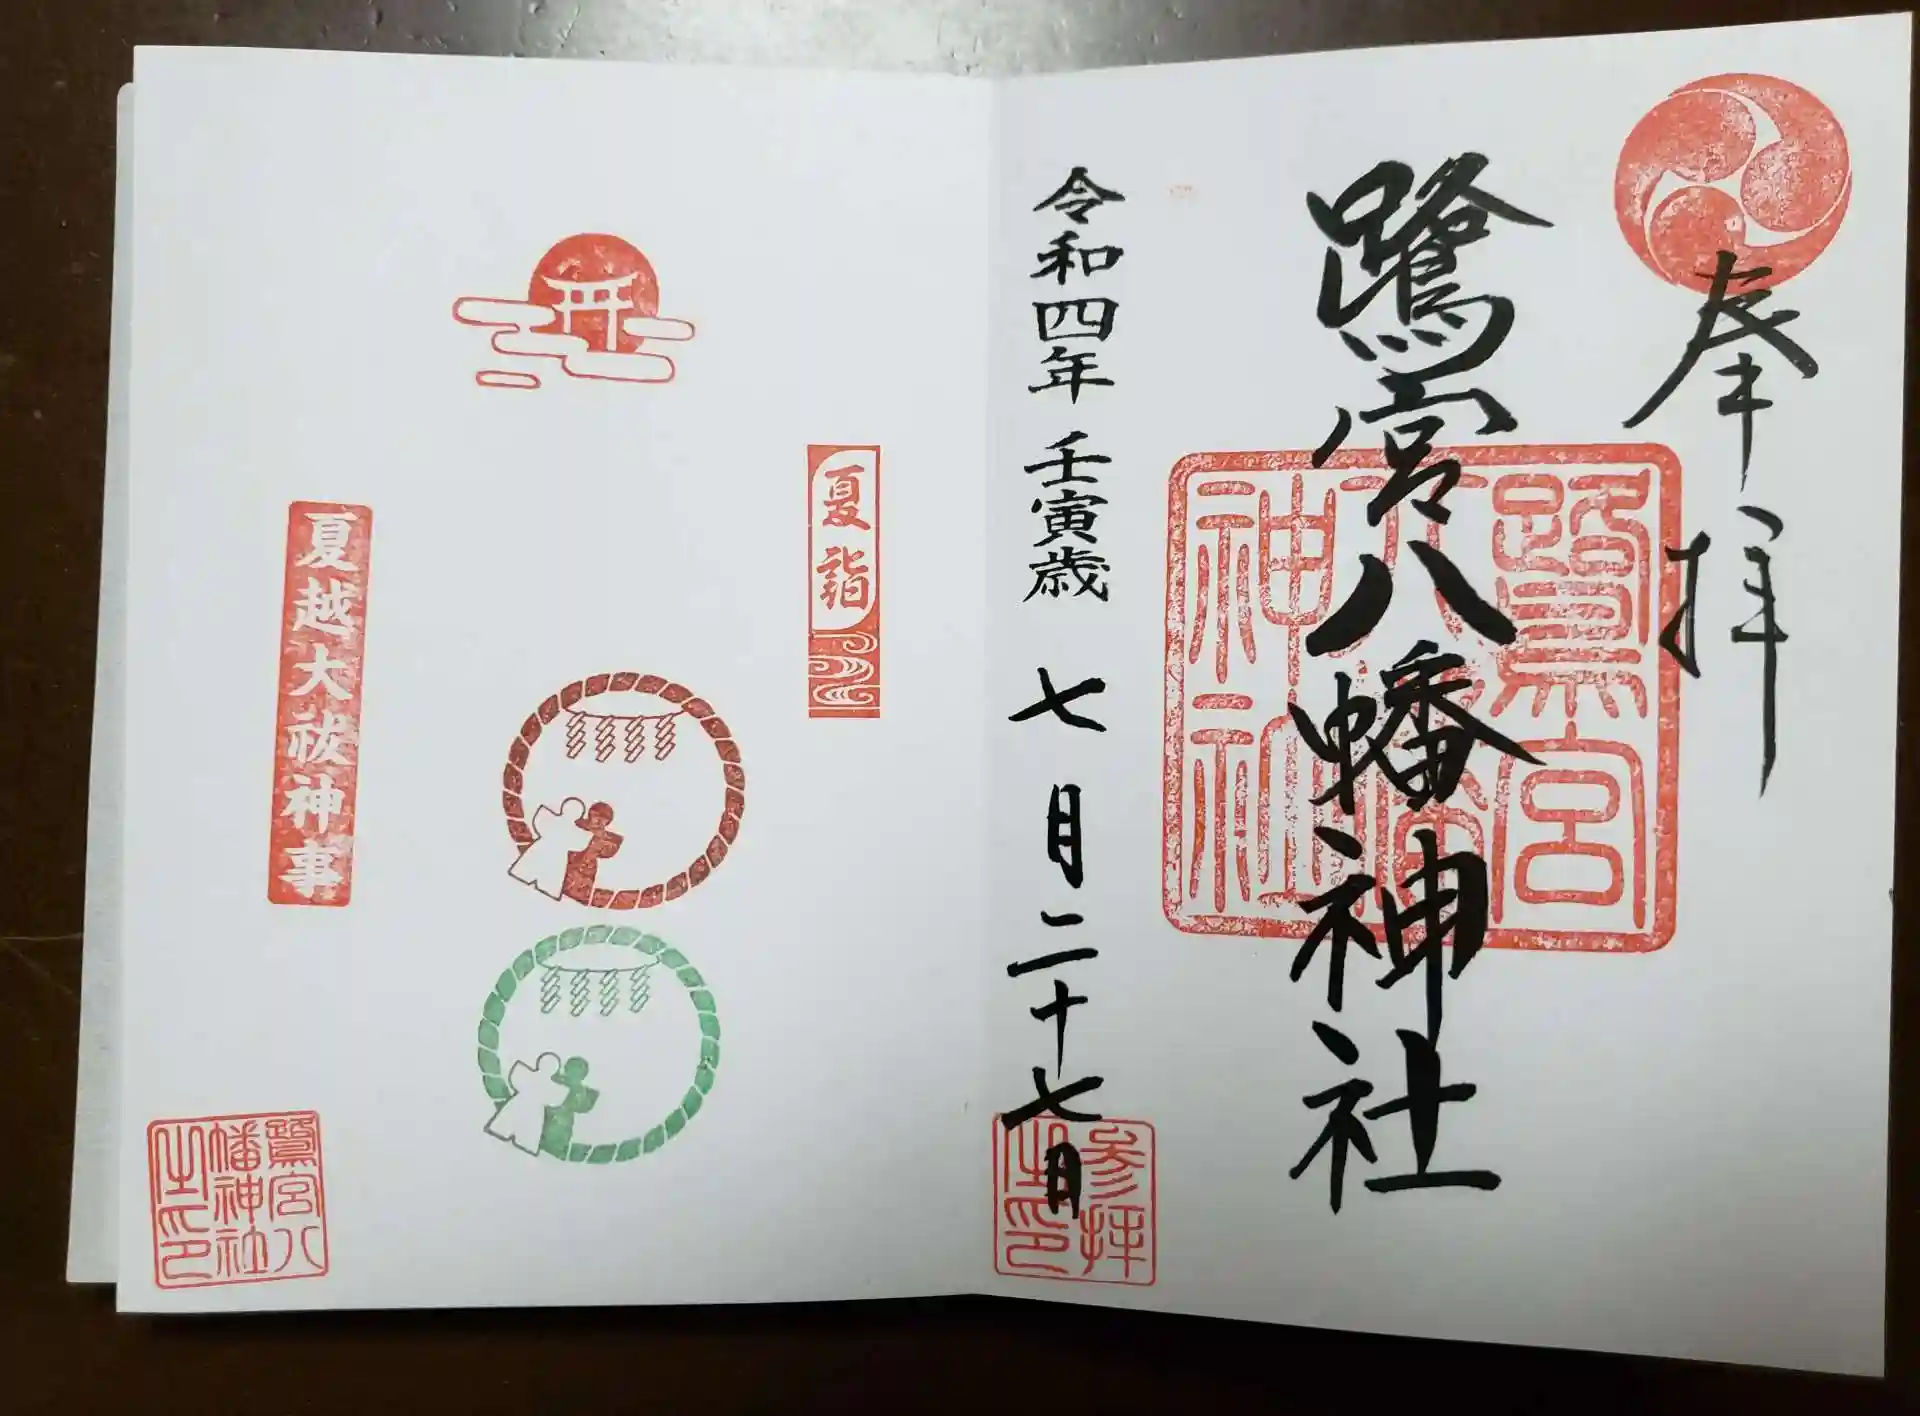 奉拝
鷺宮八幡神社
鷺宮
八幡
神社
令和四年 壬寅歳 七月二十七日
参拝
之印
夏詣
夏越大祓神事
鷺宮八
幡神社
之印